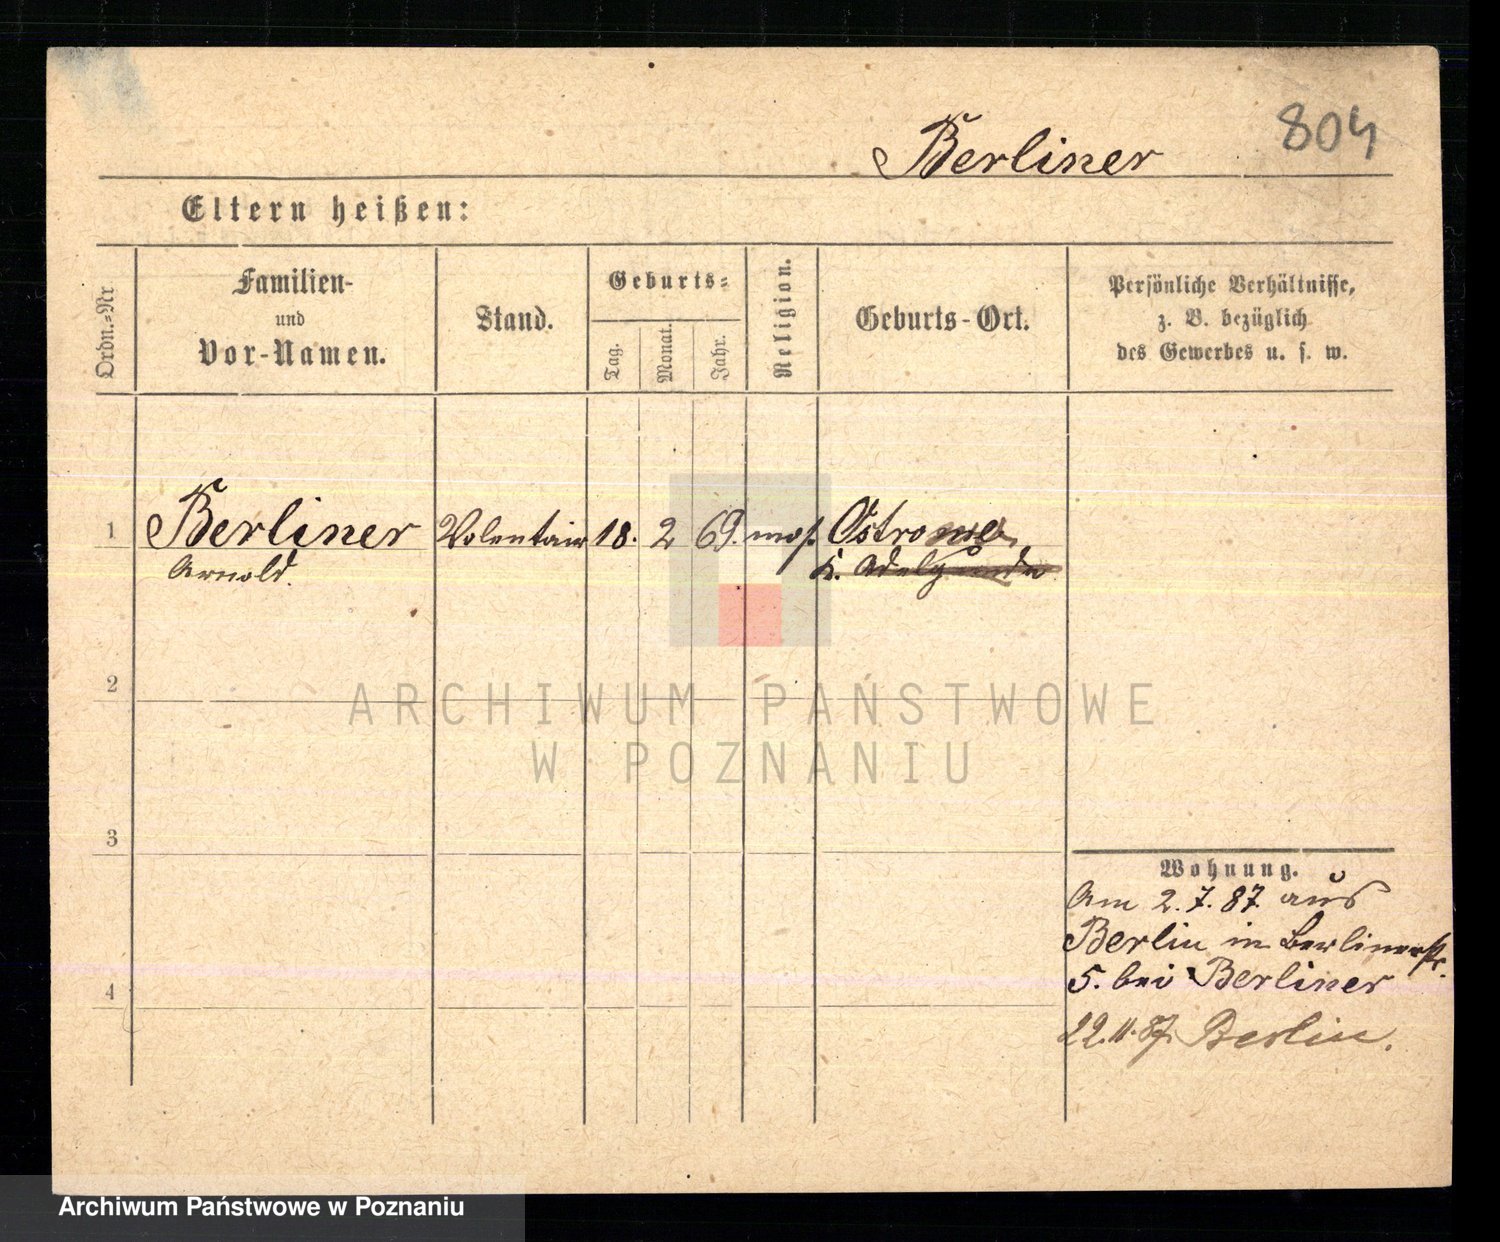 804
Berliner
Eltern heißen:
Ordn.=Nr
Familien-
und
Vor-Namen.
Stand.
Geburts=
Tag.
Monat.
Jahr.
Religion.
Geburts-Ort.
Persönliche Verhältnisse,
z. B. bezüglich
des Gewerbes u. s. w.
1 Berliner Volentair 18. 2 69. mos. Ostrowo
Arnold. K. Adelnau
2
ARCHIWUM PAŃSTWOWE
W POZNANIU
3
Wohnung.
Am 2.7.87. aus
Berlin in Berlinerstr.
5. bei Berliner
4
22.11.87. Berlin.
Archiwum Państwowe w Poznaniu